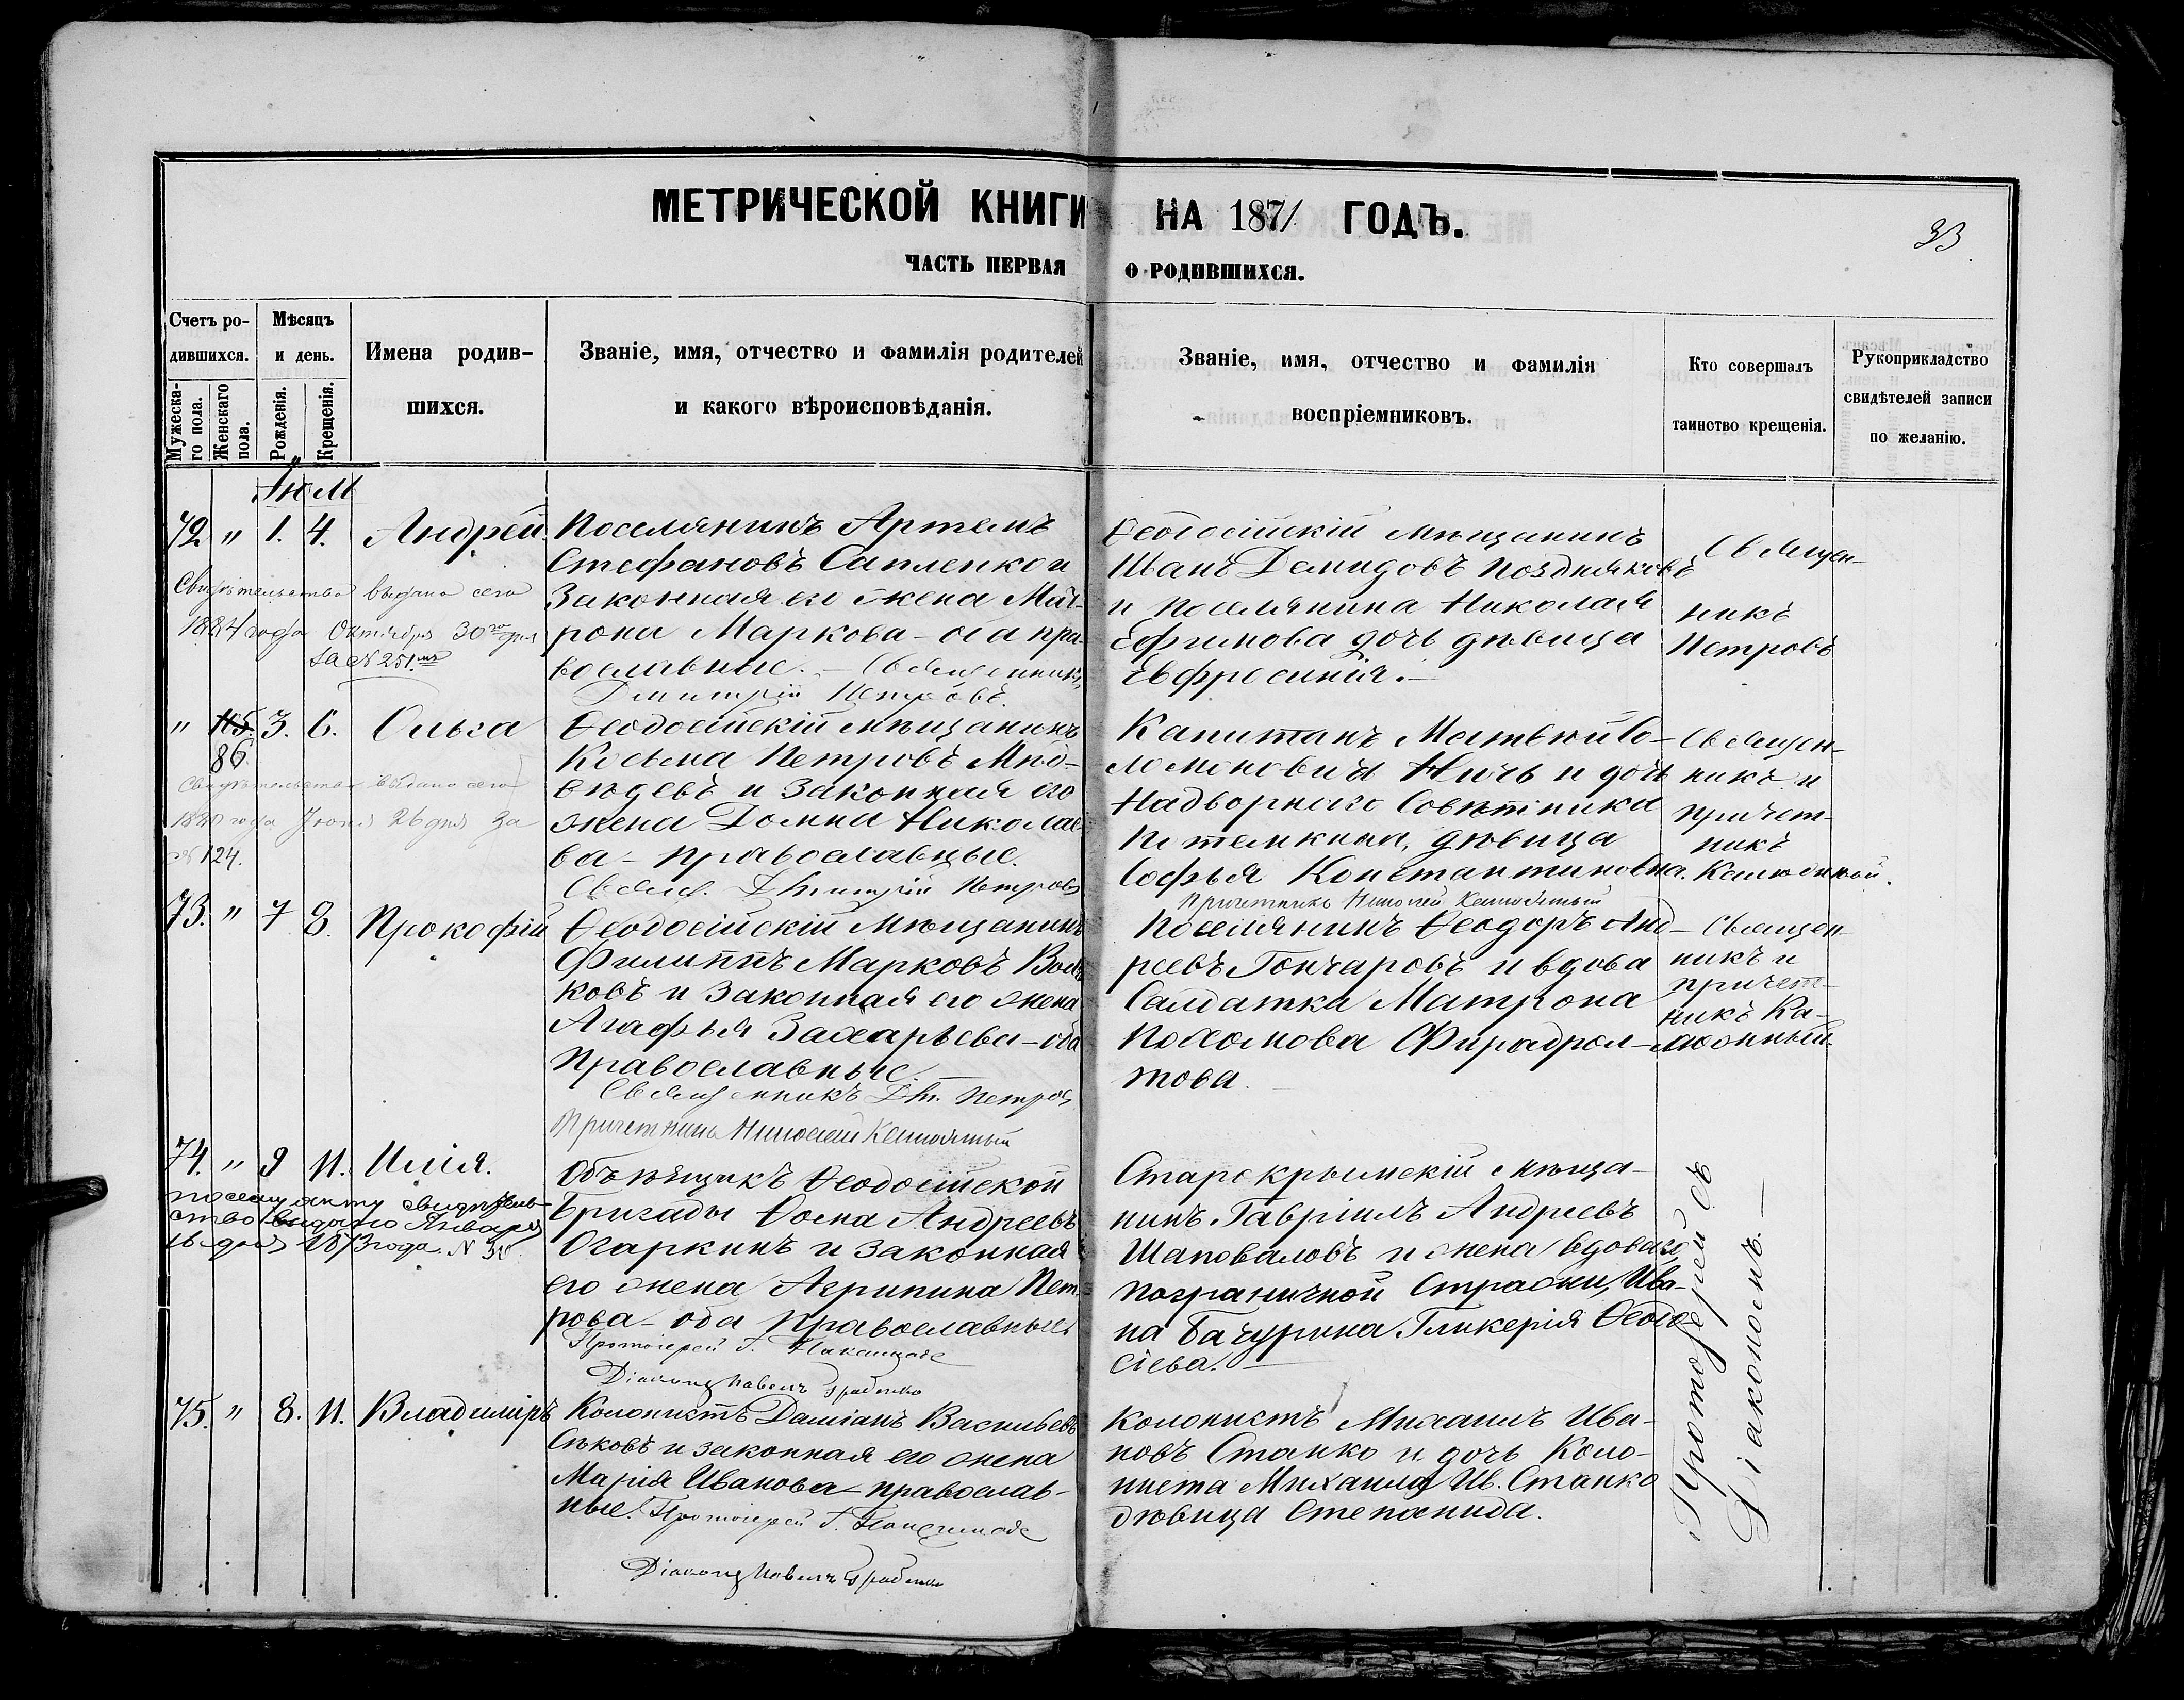 МЕТРИЧЕСКОЙ КНИГИ НА 1871 ГОДЪ.
33
ЧАСТЬ ПЕРВАЯ О РОДИВШИХСЯ.
Счетъ ро-
дившихся.
Мужеска-
го пола.
Женскаго
пола.
Мѣсяцъ
и день.
Рожденія.
Крещенія.
Имена родив-
шихся.
Званіе, имя, отчество и фамилія родителей
и какого вѣроисповѣданія.
Званіе, имя, отчество и фамилія
воспріемниковъ.
Кто совершалъ
таинство крещенія.
Рукоприкладство
свидѣтелей записи
по желанію.
72. " 1. 4. Андрей.
Свидѣтельство выдано сего
1884 года Октября 30го дня
за № 251.мъ
Поселянинъ Артемъ
Стефановъ Сапленко и
Законная его жена Мат-
рона Маркова - оба пра-
вославные. - Священникъ
Димитрій Петровъ.
Ѳеодосійскій мѣщанинъ
Иванъ Демидовъ Поздняковъ
и поселянина Николая
Ефимова дочь дѣвица
Евфросинія. -
Священ-
никъ
Петровъ
" 86. 3. 6. Ольга
Свидѣтельство выдано сего
1880 года Іюня 26 дня за
№ 124.
Ѳеодосійскій мѣщанинъ
Косьма Петровъ
и Законная его
жена Домна Николае-
ва - православные.
Свящ. Димитрій Петровъ
Капитанъ Матвѣй Со-
ломоновичъ и дочь
Надворнаго Совѣтника
Потемкина, дѣвица
Софья Константиновна.
Причетникъ Николай
Священ-
никъ и
причет-
никъ
73. " 7 8. Прокофій
Ѳеодосійскій мѣщанинъ
Филиппъ Марковъ Вол-
ковъ и Законная его жена
Агафья Захарьева - оба
Православные. -
Священникъ Дм. Петровъ
Причетникъ Николай
Поселянинъ Ѳеодоръ Анд-
реевъ Гончаровъ и вдова
Салдатка Матрона
Пахомова
това. -
Священ-
никъ и
причет-
никъ Ка-
74. " 9 11. Илія.
По сему акту свидѣтель-
ство выдано Января
16 дня 1873 года. №
Объѣщикъ Ѳеодосійской
Бригады Ѳома Андреевъ
Огаркинъ и законная
его жена Агрипина Пет-
рова - оба Православные.
Протоіерей
Діаконъ Павелъ
Старокрымскій мѣща-
нинъ Гавріилъ Андреевъ
Шаповаловъ и жена
пограничной Стражи, Ива-
на Бачурина Гликерія Ѳеодо-
сіева. -
Протоіерей съ
Діакономъ. -
75. " 8. 11. Владиміръ
Колонистъ Даміанъ Васильевъ
и законная его жена
Марія Иванова - православ-
ные. Протоіерей
Діаконъ Павелъ
Колонистъ Михаилъ Ива-
новъ Станко и дочь Коло-
ниста Михаила Ив. Станко
дѣвица Степанида.